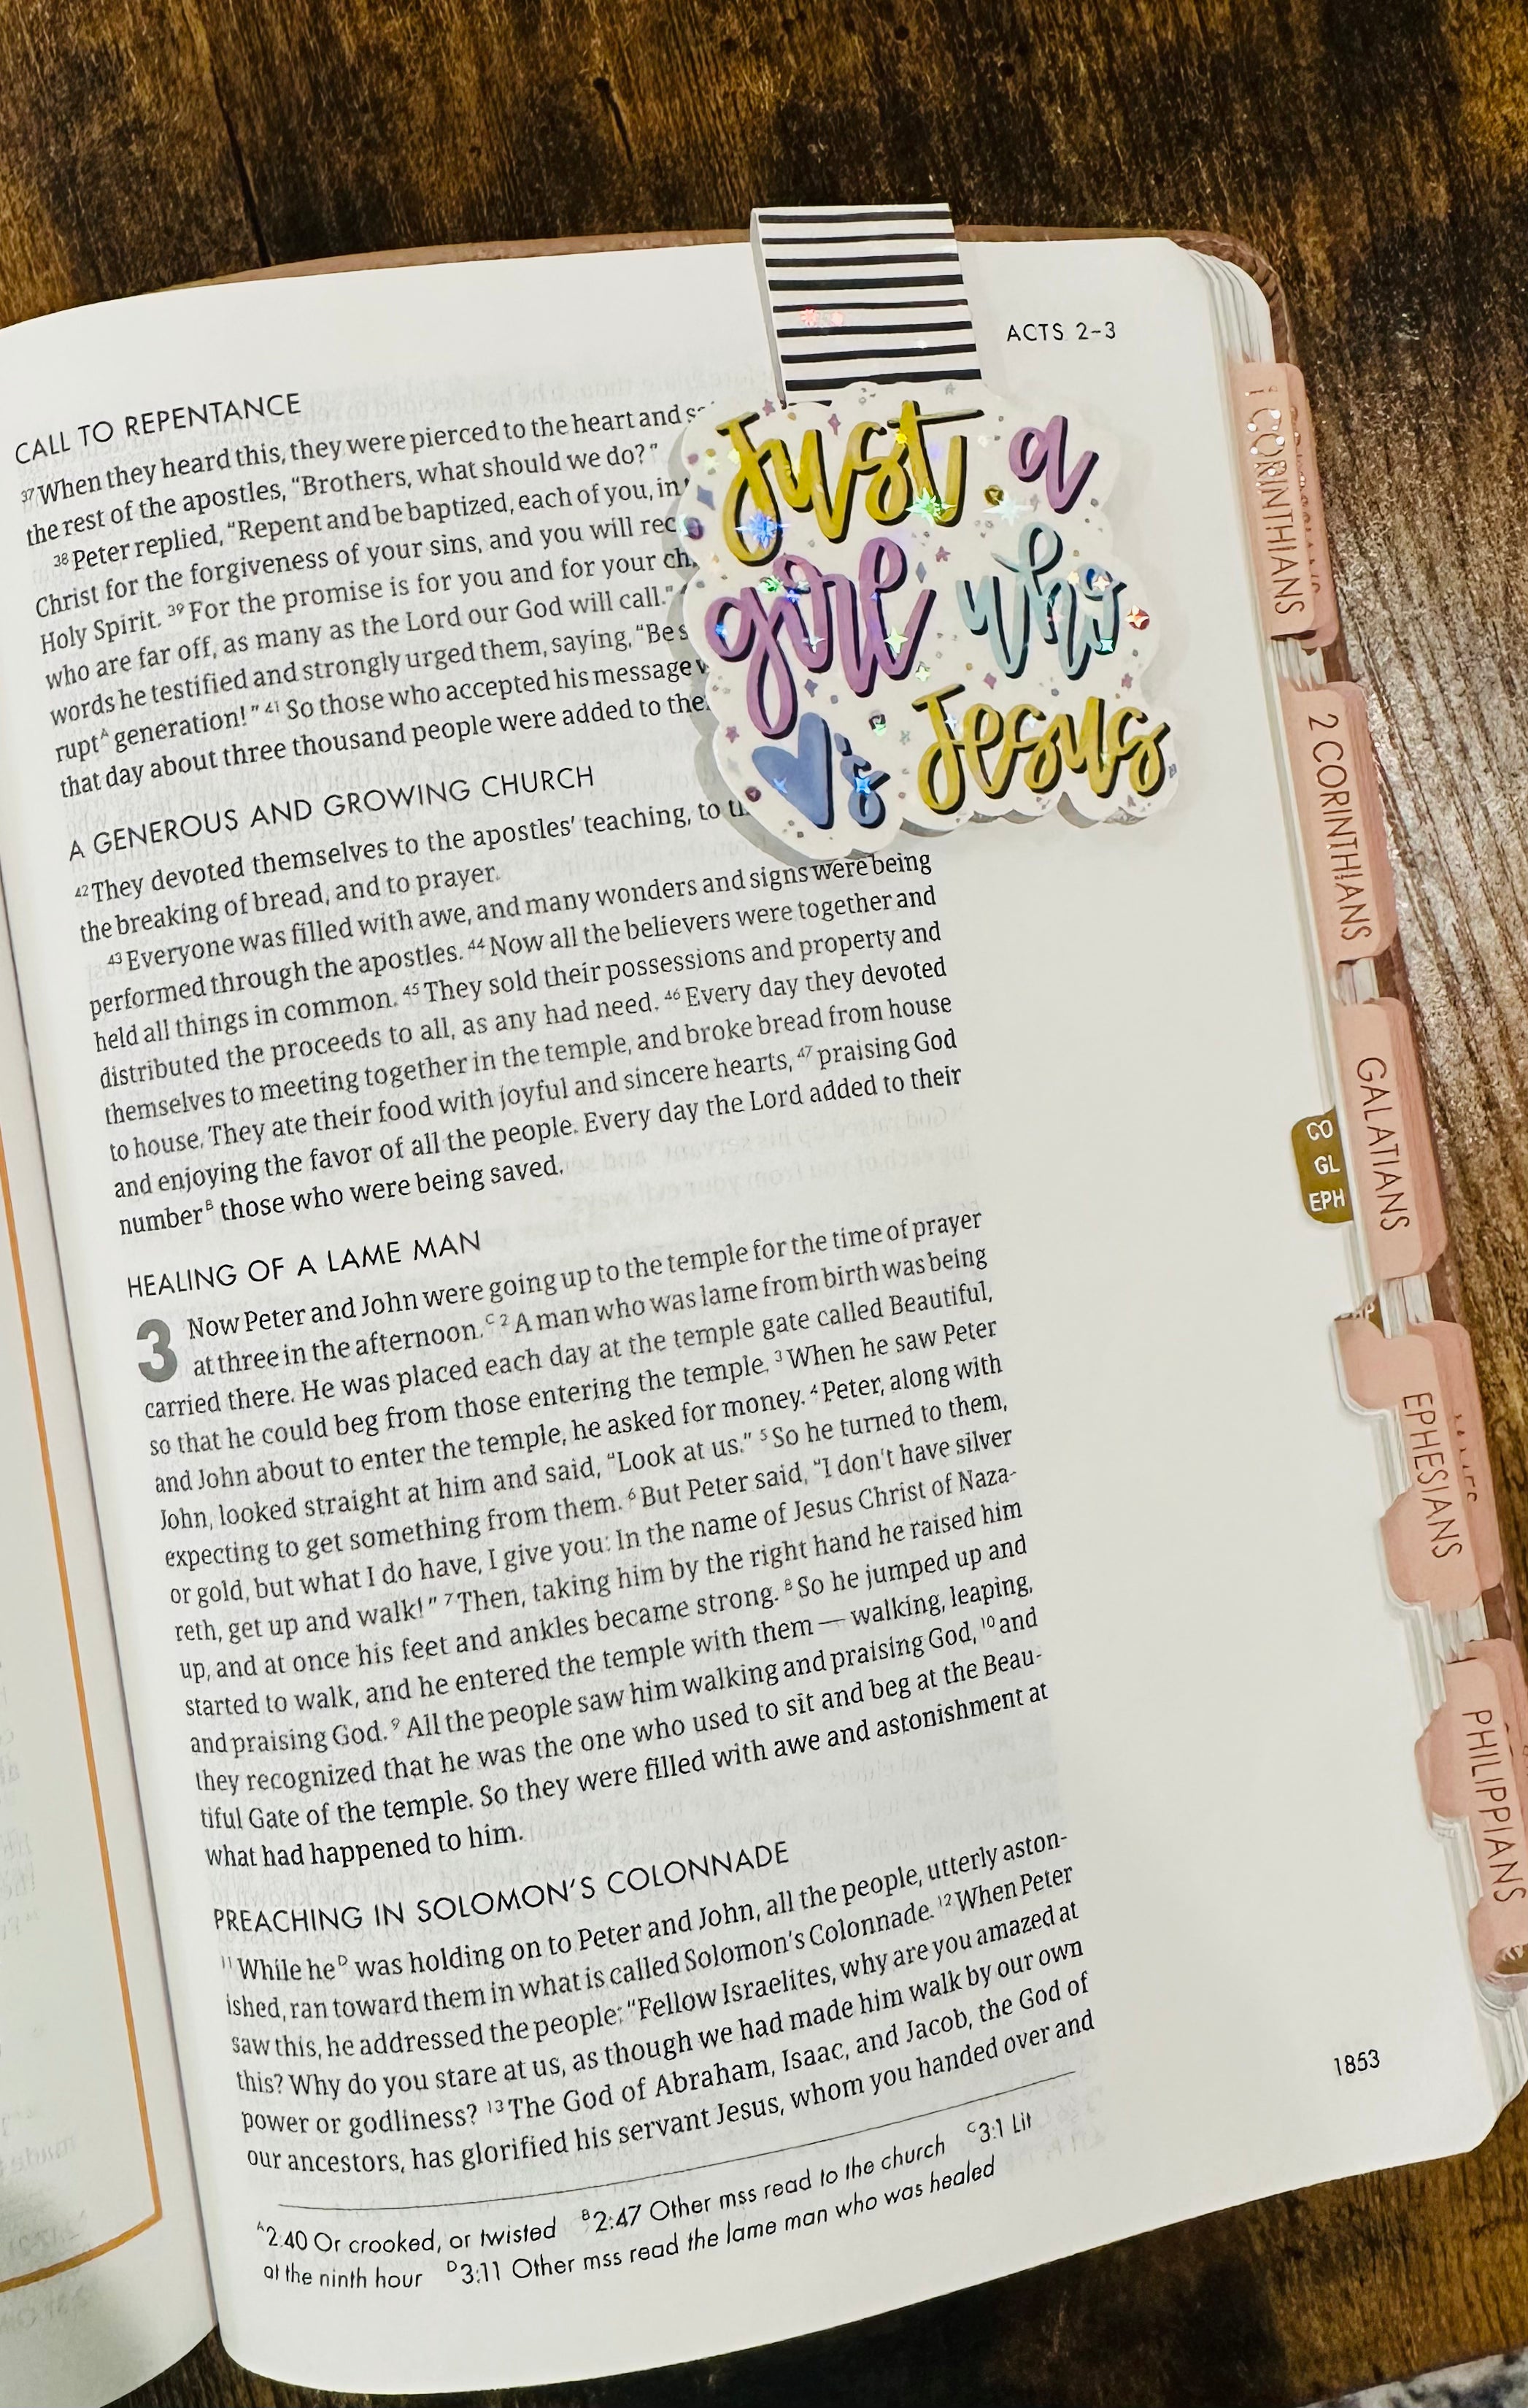 ACTS 2–3
Just a
girl who
's Jesus
CALL TO REPENTANCE
37 When they heard this, they were pierced to the heart and
the rest of the apostles, “Brothers, what should we do?”
38 Peter replied, “Repent and be baptized, each of you, in
Christ for the forgiveness of your sins, and you will
Holy Spirit. 39 For the promise is for you and for your
who are far off, as many as the Lord our God will call.”
words he testified and strongly urged them, saying, “Be
ruptA generation!” 41 So those who accepted his message
that day about three thousand people were added to
A GENEROUS AND GROWING CHURCH
42 They devoted themselves to the apostles’ teaching, to
the breaking of bread, and to prayer.
43 Everyone was filled with awe, and many wonders and signs were being
performed through the apostles. 44 Now all the believers were together and
held all things in common. 45 They sold their possessions and property and
distributed the proceeds to all, as any had need. 46 Every day they devoted
themselves to meeting together in the temple, and broke bread from house
to house. They ate their food with joyful and sincere hearts, 47 praising God
and enjoying the favor of all the people. Every day the Lord added to their
numberB those who were being saved.
HEALING OF A LAME MAN
3 Now Peter and John were going up to the temple for the time of prayer
at three in the afternoon.C 2 A man who was lame from birth was being
carried there. He was placed each day at the temple gate called Beautiful,
so that he could beg from those entering the temple. 3 When he saw Peter
and John about to enter the temple, he asked for money. 4 Peter, along with
John, looked straight at him and said, “Look at us.” 5 So he turned to them,
expecting to get something from them. 6 But Peter said, “I don’t have silver
or gold, but what I do have, I give you: In the name of Jesus Christ of Naza-
reth, get up and walk!” 7 Then, taking him by the right hand he raised him
up, and at once his feet and ankles became strong. 8 So he jumped up and
started to walk, and he entered the temple with them — walking, leaping,
and praising God. 9 All the people saw him walking and praising God, 10 and
they recognized that he was the one who used to sit and beg at the Beau-
tiful Gate of the temple. So they were filled with awe and astonishment at
what had happened to him.
PREACHING IN SOLOMON’S COLONNADE
11 While heD was holding on to Peter and John, all the people, utterly aston-
ished, ran toward them in what is called Solomon’s Colonnade. 12 When Peter
saw this, he addressed the people: “Fellow Israelites, why are you amazed at
this? Why do you stare at us, as though we had made him walk by our own
power or godliness? 13 The God of Abraham, Isaac, and Jacob, the God of
our ancestors, has glorified his servant Jesus, whom you handed over and
A2:40 Or crooked, or twisted B2:47 Other mss read to the church C3:1 Lit
at the ninth hour D3:11 Other mss read the lame man who was healed
1853
1 CORINTHIANS
2 CORINTHIANS
GALATIANS
CO
GL
EPH
EPHESIANS
PHILIPPIANS